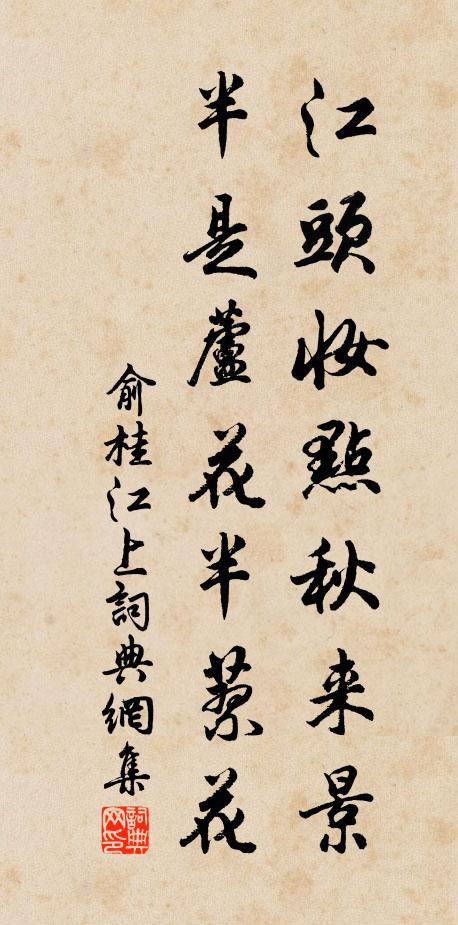 江頭妆點秋来景
半是蘆花半蓼花
俞桂江上詞典網集
詞典网印